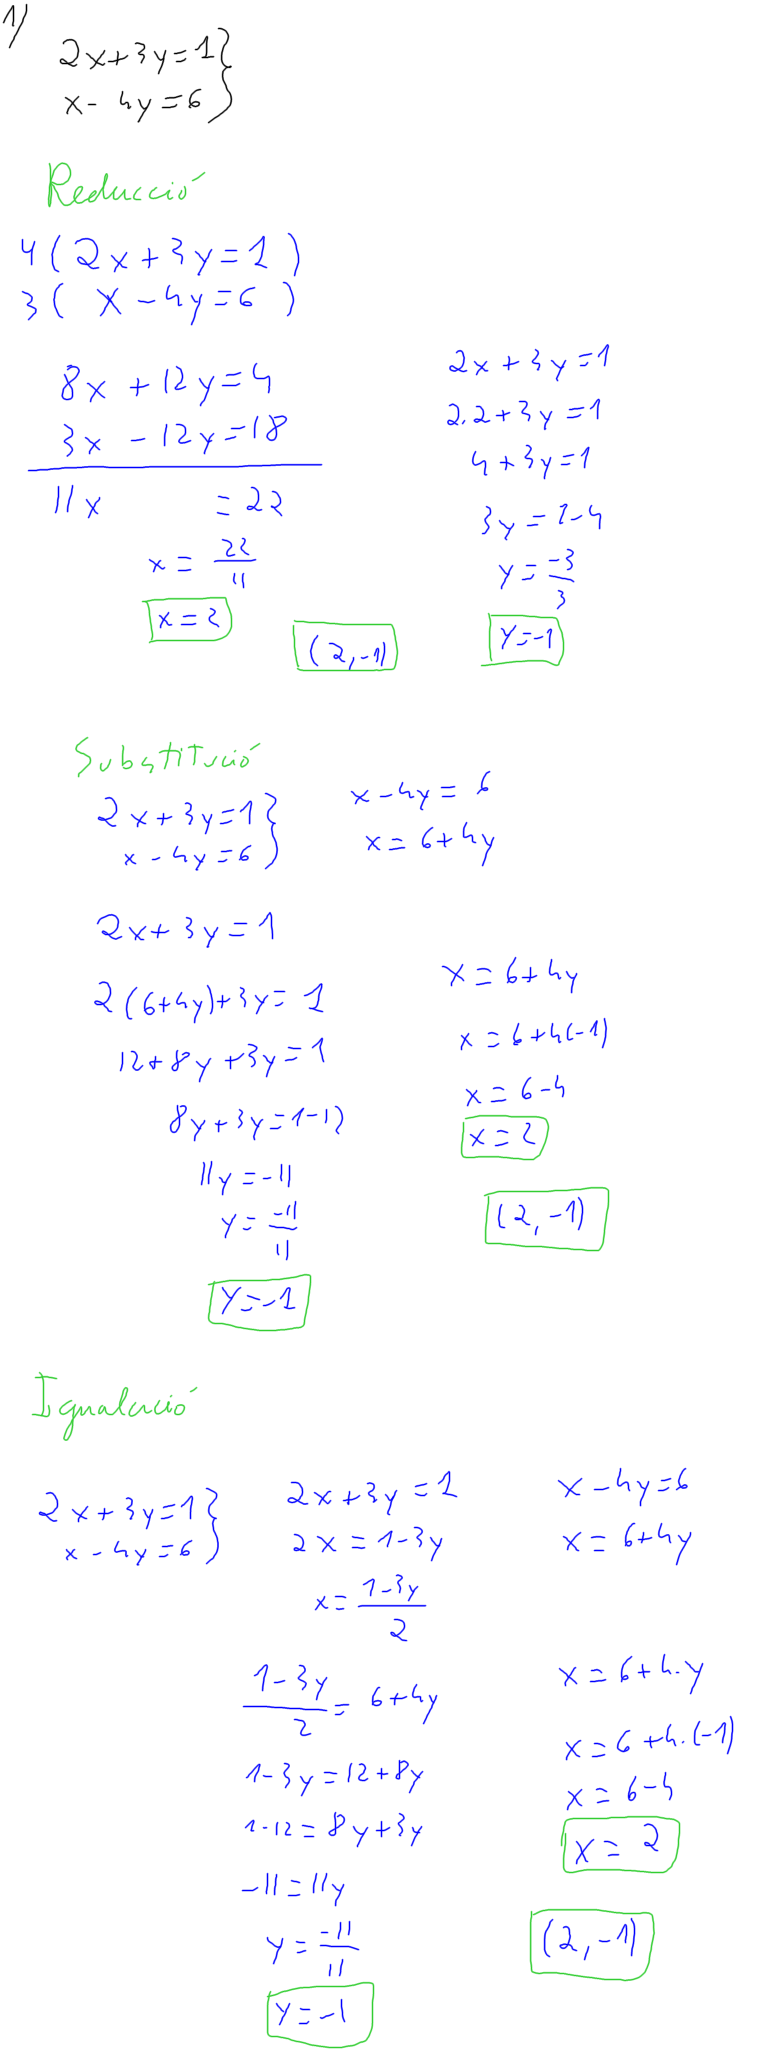 1)
2x+3y=1}
x-4y=6
Reducció
4(2x+3y=1)
3(x-4y=6)
8x+12y=4
3x-12y=18
11x =22
x=22/11
x=2
(2,-1)
2x+3y=1
2.2+3y=1
4+3y=1
3y=1-4
y=-3/3
y=-1
Substitució
2x+3y=1}
x-4y=6
x-4y=6
x=6+4y
2x+3y=1
2(6+4y)+3y=1
12+8y+3y=1
8y+3y=1-12
11y=-11
y=-11/11
y=-1
x=6+4y
x=6+4(-1)
x=6-4
x=2
(2,-1)
Igualació
2x+3y=1}
x-4y=6
2x+3y=1
2x=1-3y
x=1-3y/2
x-4y=6
x=6+4y
1-3y/2=6+4y
1-3y=12+8y
1-12=8y+3y
-11=11y
y=-11/11
y=-1
x=6+4.y
x=6+4.(-1)
x=6-4
x=2
(2,-1)